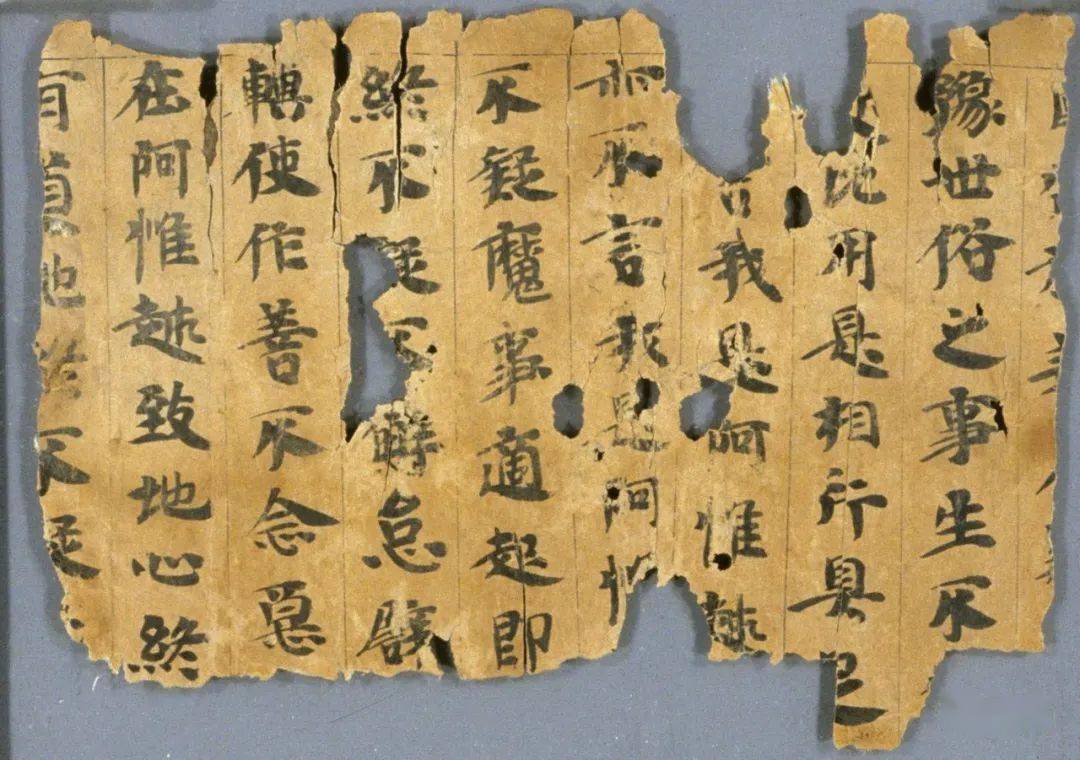 豫世俗之事坐不
比用是相行具足
言我是阿惟越
亦不言我是阿
不疑魔事適起即
終不疑不懈怠譬
轉使作善不念惡
在阿惟越致地心終
地終不疑